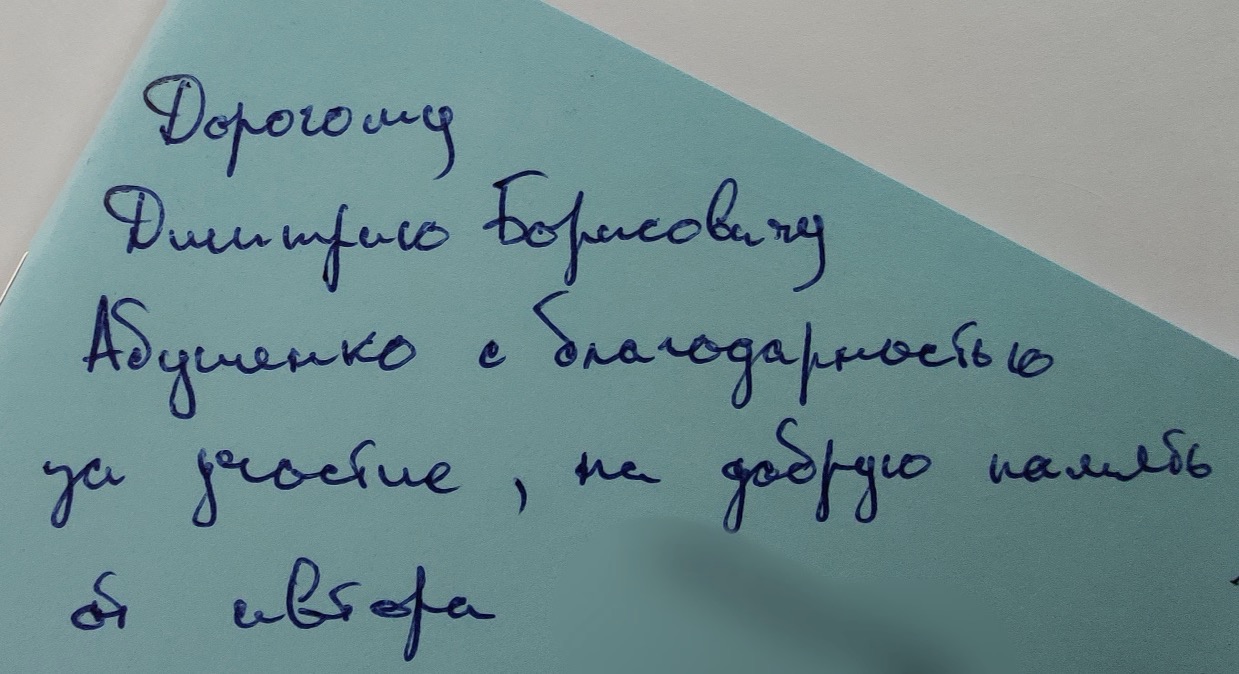 Дорогому
Дмитрию Борисовичу
Абушенко с благодарностью
за участие, на добрую память
от автора